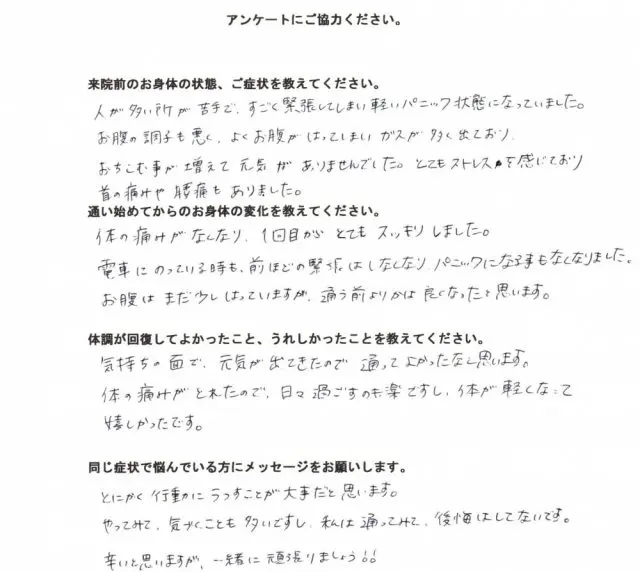 アンケートにご協力ください。
来院前のお身体の状態、ご症状を教えてください。
人が多い所が苦手で、すごく緊張してしまい軽いパニック状態になっていました。
お腹の調子も悪く、よくお腹がはってしまいガスが多く出ており、
おちこむ事が増えて元気がありませんでした。とてもストレスを感じており
首の痛みや腰痛もありました。
通い始めてからのお身体の変化を教えてください。
体の痛みがなくなり、1回目からとてもスッキリしました。
電車にのっている時も、前ほどの緊張はしなくなり、パニックになる事もなくなりました。
お腹はまだ少しはっていますが、通う前よりかは良くなったと思います。
体調が回復してよかったこと、うれしかったことを教えてください。
気持ちの面で、元気が出てきたので通ってよかったなと思います。
体の痛みがとれたので、日々過ごすのも楽ですし、体が軽くなって
嬉しかったです。
同じ症状で悩んでいる方にメッセージをお願いします。
とにかく行動にうつすことが大事だと思います。
やってみて、気づくことも多いですし、私は通ってみて、後悔はしてないです。
辛いと思いますが、一緒に頑張りましょう!!